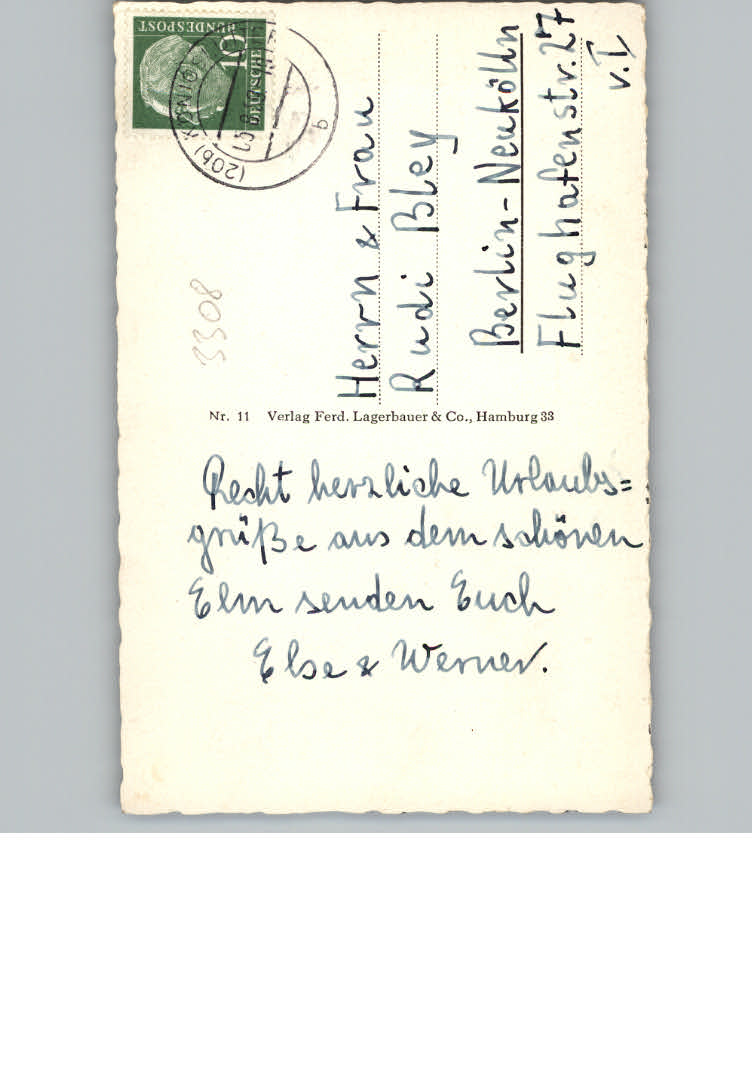 DEUTSCHE
BUNDESPOST
10
(20b)
b
3308
Herrn & Frau
Rudi Bley
Berlin-Neukölln
Flughafenstr. 27
v. I
Nr. 11 Verlag Ferd. Lagerbauer & Co., Hamburg 33
Recht herzliche Urlaubs=
grüße aus dem schönen
Elm senden Euch
Else & Werner.